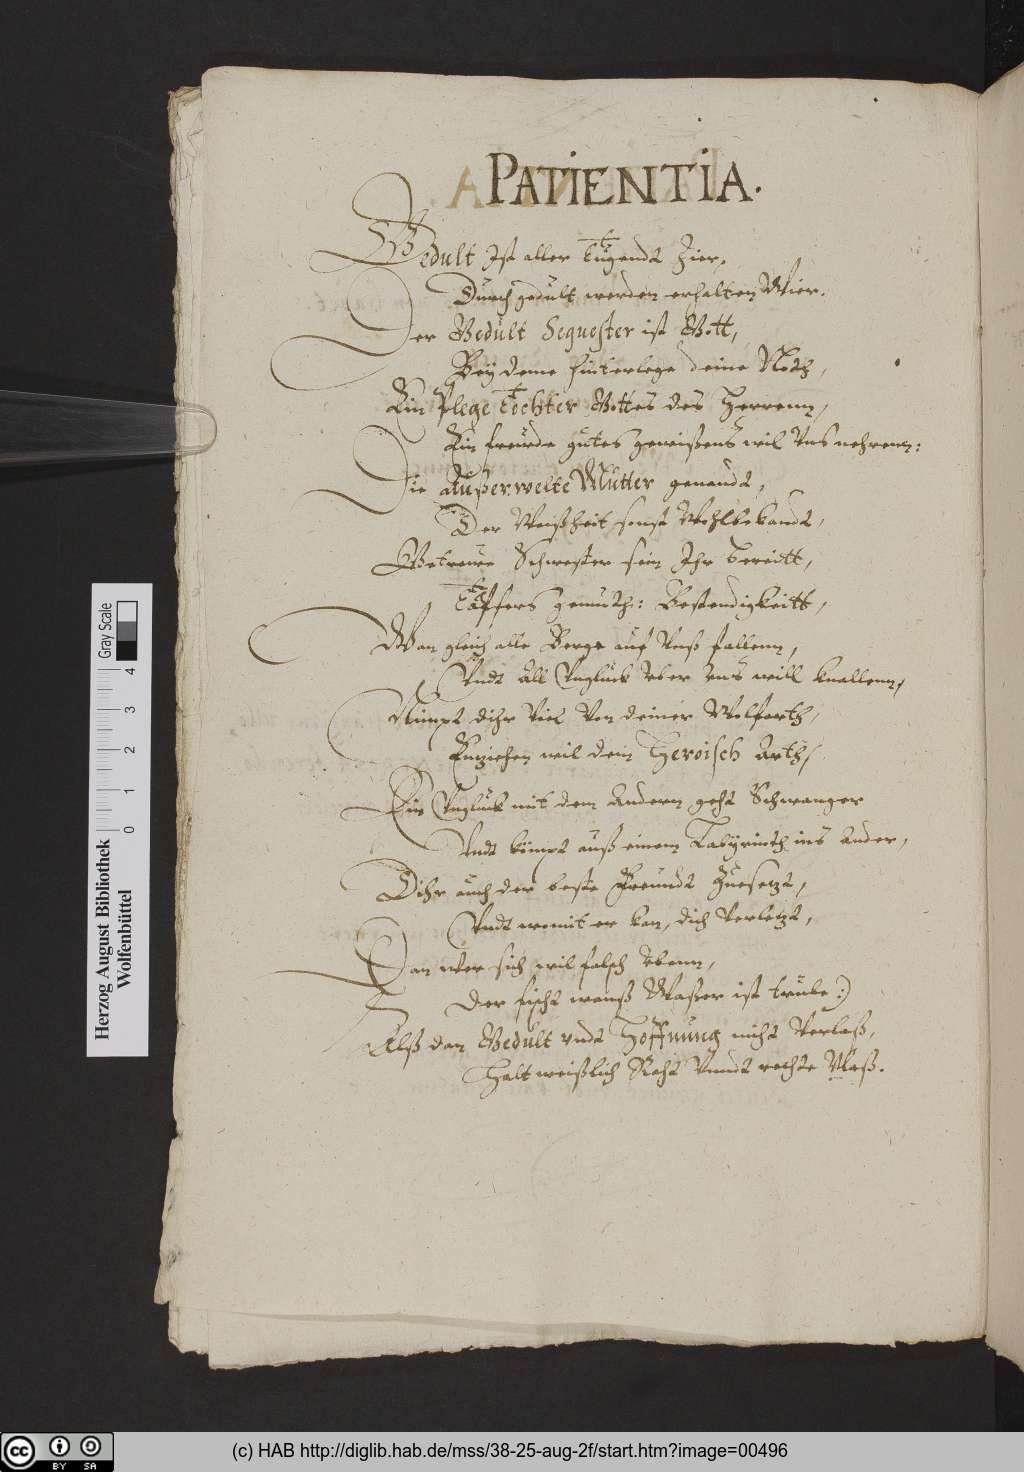 PATIENTIA.
Gedult Ist aller Tugendt Zier,
Durch gedult werden erhalten Wier.
Der Gedult Sequester ist Gott,
Bey deme hinterlege deine Noth,
Ein Plege Tochter Gottes des Herrenn,
Ein freude gutes gewißens wil Uns nehrenn:
Die Außerwelte Mutter genandt,
Der Weißheit sonst Wohlbekandt,
Getreue Schwester sein Ihr bereitt,
Tapffers gemüth: Bestendigkeitt,
Wan gleich alle Berge auf Unß fallenn,
Undt all Unglück Uber uns will knallenn,
Nimpt dihr Viel Von deiner Wolfarth,
Entziehen wil dein Heroisch Arth,
Ein Unglück mit dem Andern geht Schwanger
Undt kömpt auß einem Labyrinth ins ander,
Dihr auch der beste Freundt Zuesetzt,
Undt womit er kan, dich Verletzt,
Dan wer sich wil falsch Ubenn,
Der fischt wenß Waßer ist trübe:)
Alß dan Gedult undt Hoffnung nicht Verlaß,
Halt weißlich Raht Unndt rechte Maß.
Herzog August Bibliothek
Wolfenbüttel
0 1 2 3 4
Gray Scale
cc BY SA
(c) HAB http://diglib.hab.de/mss/38-25-aug-2f/start.htm?image=00496